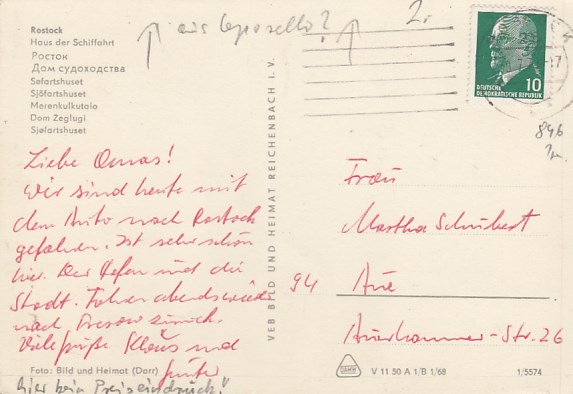 Rostock
Haus der Schiffahrt
Росток
Дом судоходства
Søfartshuset
Sjöfartshuset
Merenkulkutalo
Dom Zeglugi
Sjøfartshuset
aus ?
2.
DEUTSCHE
DEMOKRATISCHE REPUBLIK
10
846
Liebe Omas!
Wir sind heute mit
dem Auto nach Rostock
gefahren. Ist sehr schön
hier. Der Hafen und die
Stadt. Fahren abends wieder
nach Dresow zurück.
Viele Grüße Klaus und
Günter
VEB BILD UND HEIMAT REICHENBACH I. V.
Frau
Martha Schubert
94 Aue
Auerhammer-Str. 26
Foto: Bild und Heimat (Darr)
V 11 50 A 1/B 1/68
1/5574
hier kein Preiseindruck!"